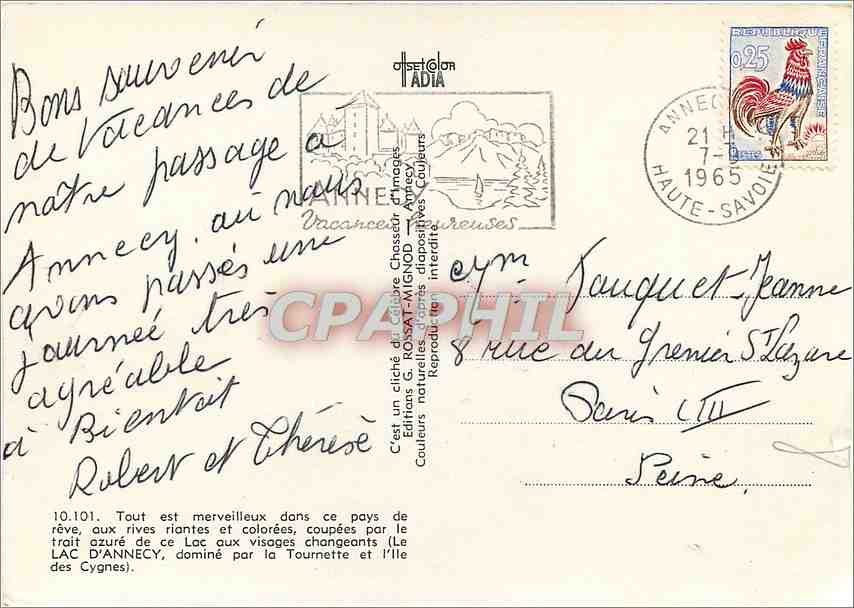 Bons souvenir
de Vacances de
nôtre passage à
Annecy, où nous
avons passés une
journée très
agréable
à Bientôit
Robert et Thérèsè
10.101. Tout est merveilleux dans ce pays de
rêve, aux rives riantes et colorées, coupées par le
trait azuré de ce Lac aux visages changeants (Le
LAC D'ANNECY, dominé par la Tournette et l'Ile
des Cygnes).
OFFSETCOLOR
IADIA
ANNECY
Vacances heureuses
C'est un cliché du Célèbre Chasseur d'Images
Editions G. ROSSAT-MIGNOD - Annecy
Couleurs naturelles d'après diapositives Couleurs
Reproduction interdite
CPAPHIL
REPUBLIQUE FRANÇAISE
0,25
POSTES
ANNECY
21 H
7-
1965
HAUTE-SAVOIE
Fauquet-Jeanne
8 rue du Grenier St Lazare
Paris III
Seine